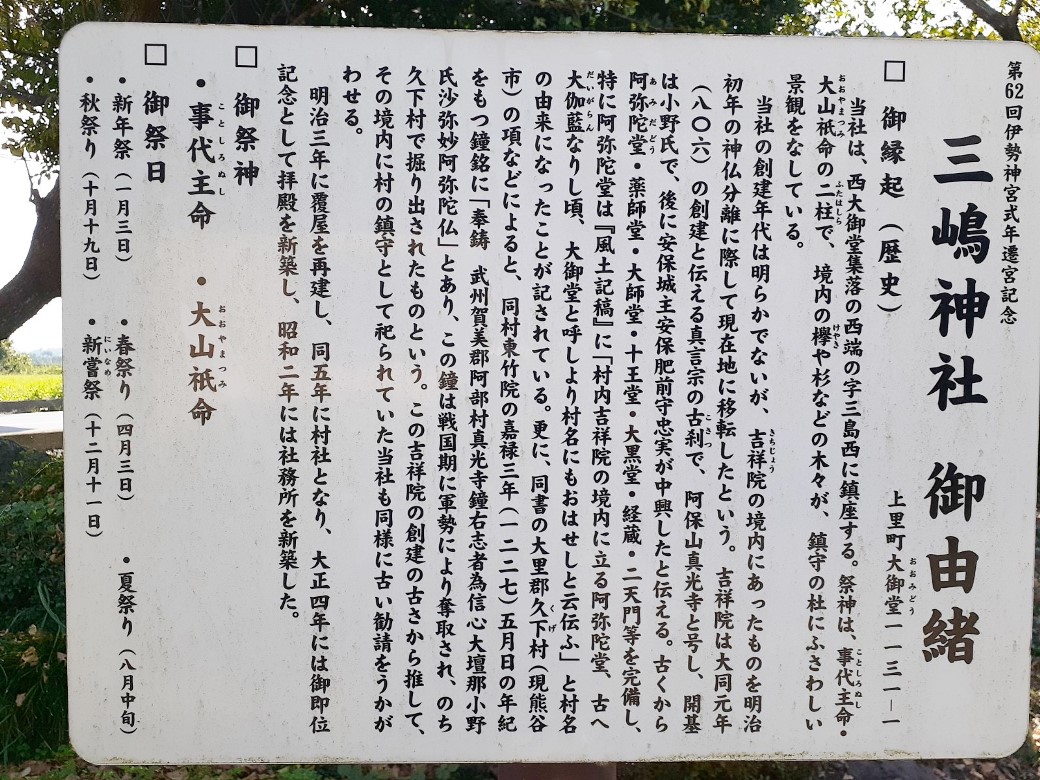 第62回伊勢神宮式年遷宮記念
三嶋神社 御由緒
上里町大御堂一一三一－一
□ 御縁起（歴史）
当社は、西大御堂集落の西端の字三島西に鎮座する。祭神は、事代主命・
大山祇命の二柱で、境内の欅や杉などの木々が、鎮守の杜にふさわしい
景観をなしている。
当社の創建年代は明らかでないが、吉祥院の境内にあったものを明治
初年の神仏分離に際して現在地に移転したという。吉祥院は大同元年
（八〇六）の創建と伝える真言宗の古刹で、阿保山真光寺と号し、開基
は小野氏で、後に安保城主安保肥前守忠実が中興したと伝える。古くから
阿弥陀堂・薬師堂・大師堂・十王堂・大黒堂・経蔵・二天門等を完備し、
特に阿弥陀堂は『風土記稿』に「村内吉祥院の境内に立る阿弥陀堂、古へ
大伽藍なりし頃、大御堂と呼しより村名にもおはせしと云伝ふ」と村名
の由来になったことが記されている。更に、同書の大里郡久下村（現熊谷
市）の項などによると、同村東竹院の嘉禄三年（一二二七）五月日の年紀
をもつ鐘銘に「奉鋳 武州賀美郡阿部村真光寺鐘右志者為信心大壇那小野
氏沙弥妙阿弥陀仏」とあり、この鐘は戦国期に軍勢により奪取され、のち
久下村で掘り出されたものという。この吉祥院の創建の古さから推して、
その境内に村の鎮守として祀られていた当社も同様に古い勧請をうかが
わせる。
明治三年に覆屋を再建し、同五年に村社となり、大正四年には御即位
記念として拝殿を新築し、昭和二年には社務所を新築した。
□ 御祭神
・事代主命 ・大山祇命
□ 御祭日
・新年祭（一月三日） ・春祭り（四月三日） ・夏祭り（八月中旬）
・秋祭り（十月十九日） ・新嘗祭（十二月十一日）